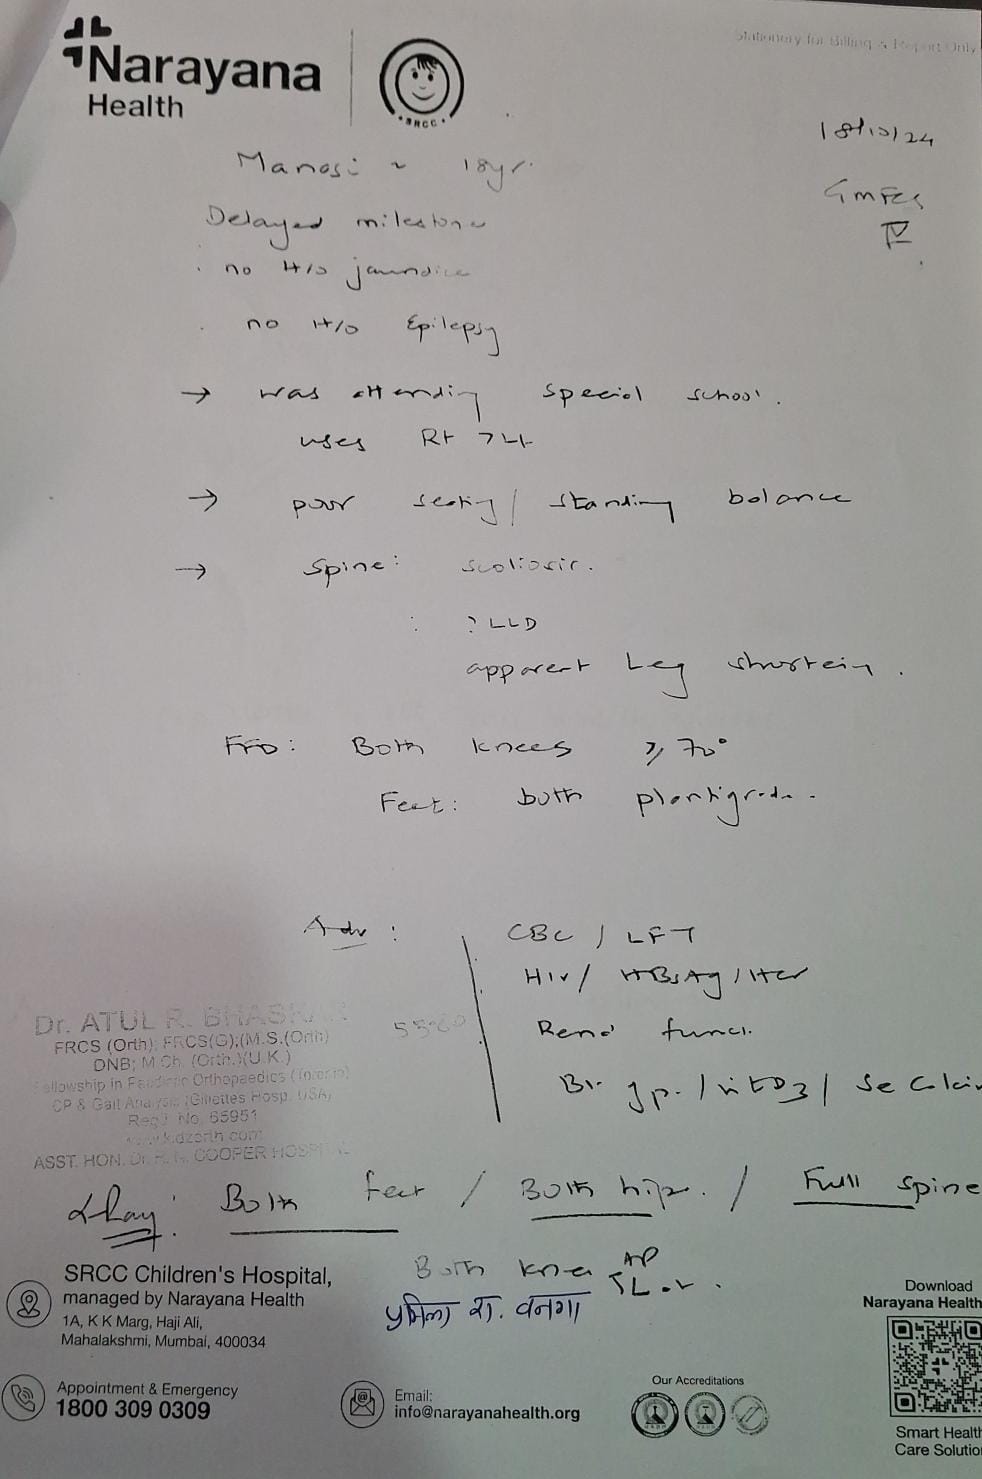 Narayana
Health
SRCC
Stationery for Billing & Report Only
18/10/24
GMFCS
IV
Manasi ~ 18yr.
Delayed milestone
. no H/o jaundice
. no H/o Epilepsy
→ was attending special school.
uses Rt > Lt
→ poor seating / standing balance
→ Spine: scoliosis.
: ? LLD
apparent Leg shortein.
FFD: Both knees ≥ 70°
Feet: both plantigrade.
Adv: CBC / LFT
HIV / HBsAg / HCV
Renal func.
Bl. gp. / vit D3 / Se Calciu
Dr. ATUL R. BHASKAR
FRCS (Orth); FRCS(G);(M.S.(Orth)
DNB; M.Ch. (Orth.)(U.K.)
Fellowship in Paediatric Orthopaedics (Toronto)
CP & Gait Analysis (Gillettes Hosp. USA)
Regd No. 65951
www.kidzorth.com
ASST. HON. Dr. R. N. COOPER HOSPITAL
Xray: Both feet / Both hip. / Full spine
Both knee AP
प्रमिला रा. वनगा
SRCC Children's Hospital,
managed by Narayana Health
1A, K K Marg, Haji Ali,
Mahalakshmi, Mumbai, 400034
Download
Narayana Health
Appointment & Emergency
1800 309 0309
Email:
info@narayanahealth.org
Our Accreditations
Smart Health
Care Solutio